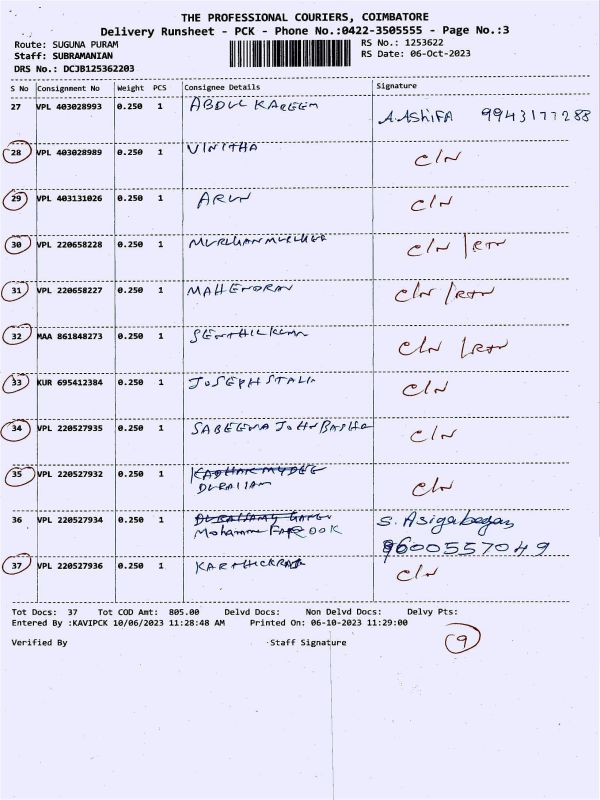 THE PROFESSIONAL COURIERS, COIMBATORE
Delivery Runsheet - PCK - Phone No.:0422-3505555 - Page No.:3
Route: SUGUNA PURAM RS No.: 1253622
Staff: SUBRAMANIAN RS Date: 06-Oct-2023
DRS No.: DCJB125362203
S No Consignment No Weight PCS Consignee Details Signature
27 VPL 403028993 0.250 1 ABDUL KAREEM A.AShiFA 9943177288
28 VPL 403028989 0.250 1 VINITHA C/N
29 VPL 403131026 0.250 1 ARUN C/N
30 VPL 220658228 0.250 1 C/N / RTN
31 VPL 220658227 0.250 1 MAHENDRAN C/N / RTN
32 MAA 861848273 0.250 1 SENTHILKUMA C/N / RTN
33 KUR 695412384 0.250 1 JOSEPH STALIN C/N
34 VPL 220527935 0.250 1 SABEENA JOHN BASHA C/N
35 VPL 220527932 0.250 1 KADHAR MYDEE
C/N
36 VPL 220527934 0.250 1 S. Asigabegam
FAROOK 9600557049
37 VPL 220527936 0.250 1 C/N
Tot Docs: 37 Tot COD Amt: 805.00 Delvd Docs: Non Delvd Docs: Delvy Pts:
Entered By :KAVIPCK 10/06/2023 11:28:48 AM Printed On: 06-10-2023 11:29:00
Verified By Staff Signature 9